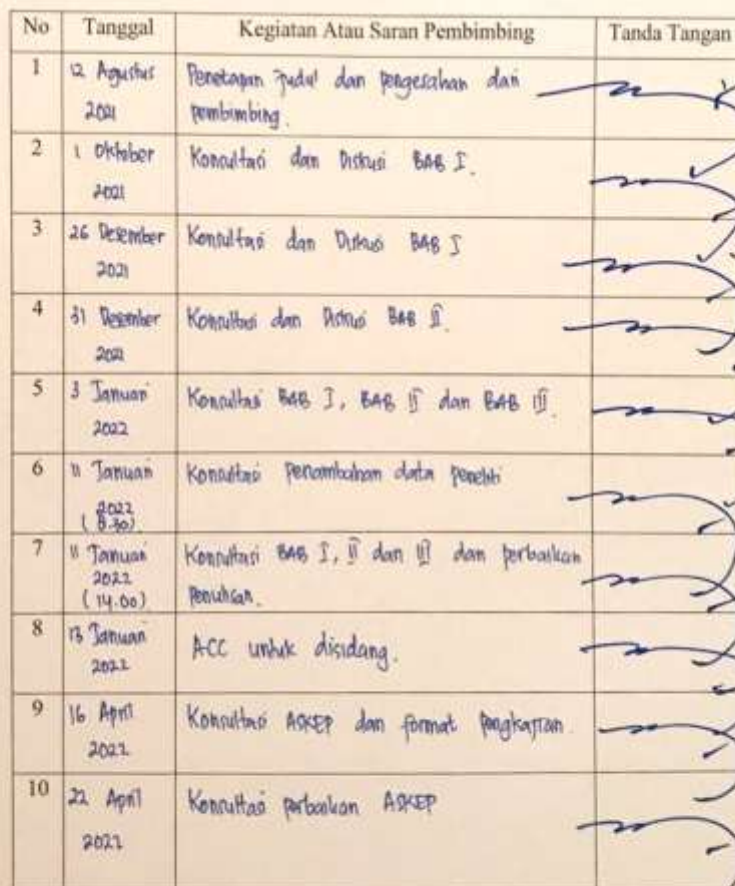 No Tanggal Kegiatan Atau Saran Pembimbing Tanda Tangan
1 12 Agustus Penetapan judul dan pengesahan dari
2021 pembimbing.
2 1 Oktober Konsultasi dan Diskusi BAB I.
2021
3 26 Desember Konsultasi dan Diskusi BAB I
2021
4 31 Desember Konsultasi dan Diskusi BAB II.
2021
5 3 Januari Konsultasi BAB I, BAB II dan BAB III.
2022
6 11 Januari Konsultasi Penambahan data peneliti
2022
(8.30)
7 11 Januari Konsultasi BAB I, II dan III dan perbaikan
2022 Penulisan.
(14.00)
8 13 Januari ACC untuk disidang.
2022
9 16 April Konsultasi ASKEP dan format pengkajian
2022
10 22 April Konsultasi perbaikan ASKEP
2022